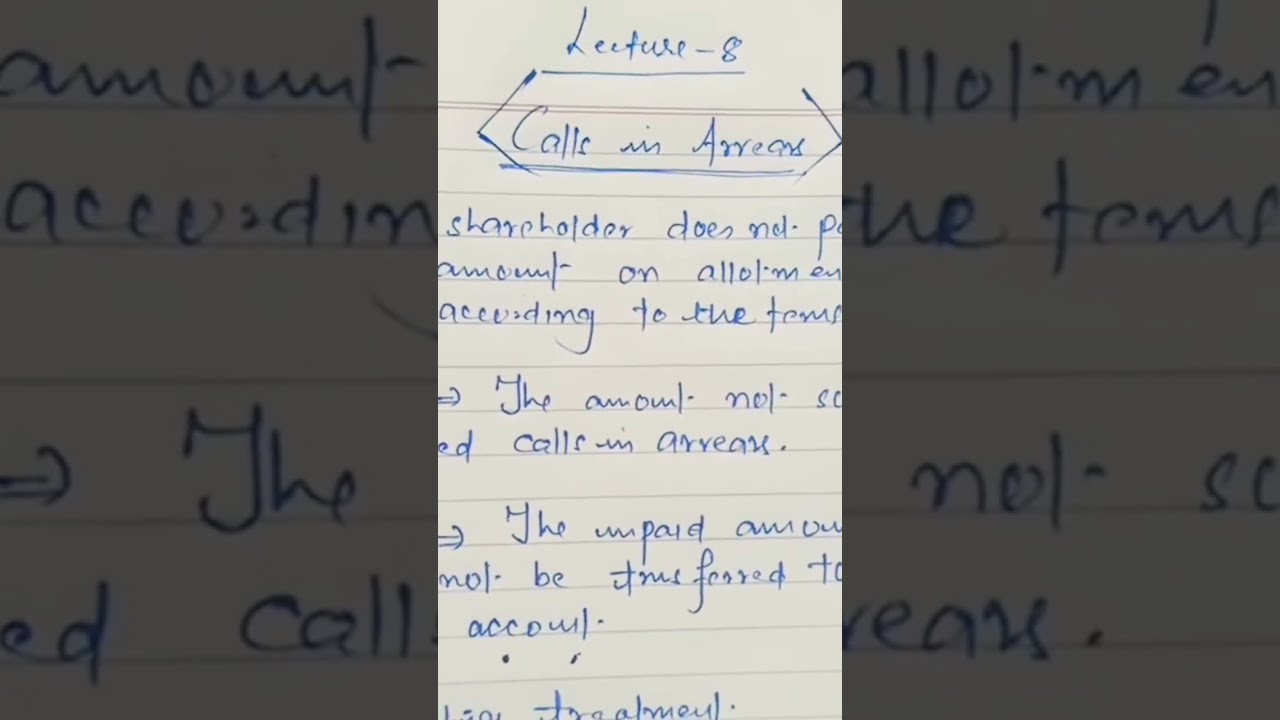 Lecture-8
Calls in Arrears
shareholder does not
amount on allotmen
according to the tems
⇒ The amount not
ed calls in arrears.
⇒ The unpaid amou
not be tnsferred to
account.
treatment.